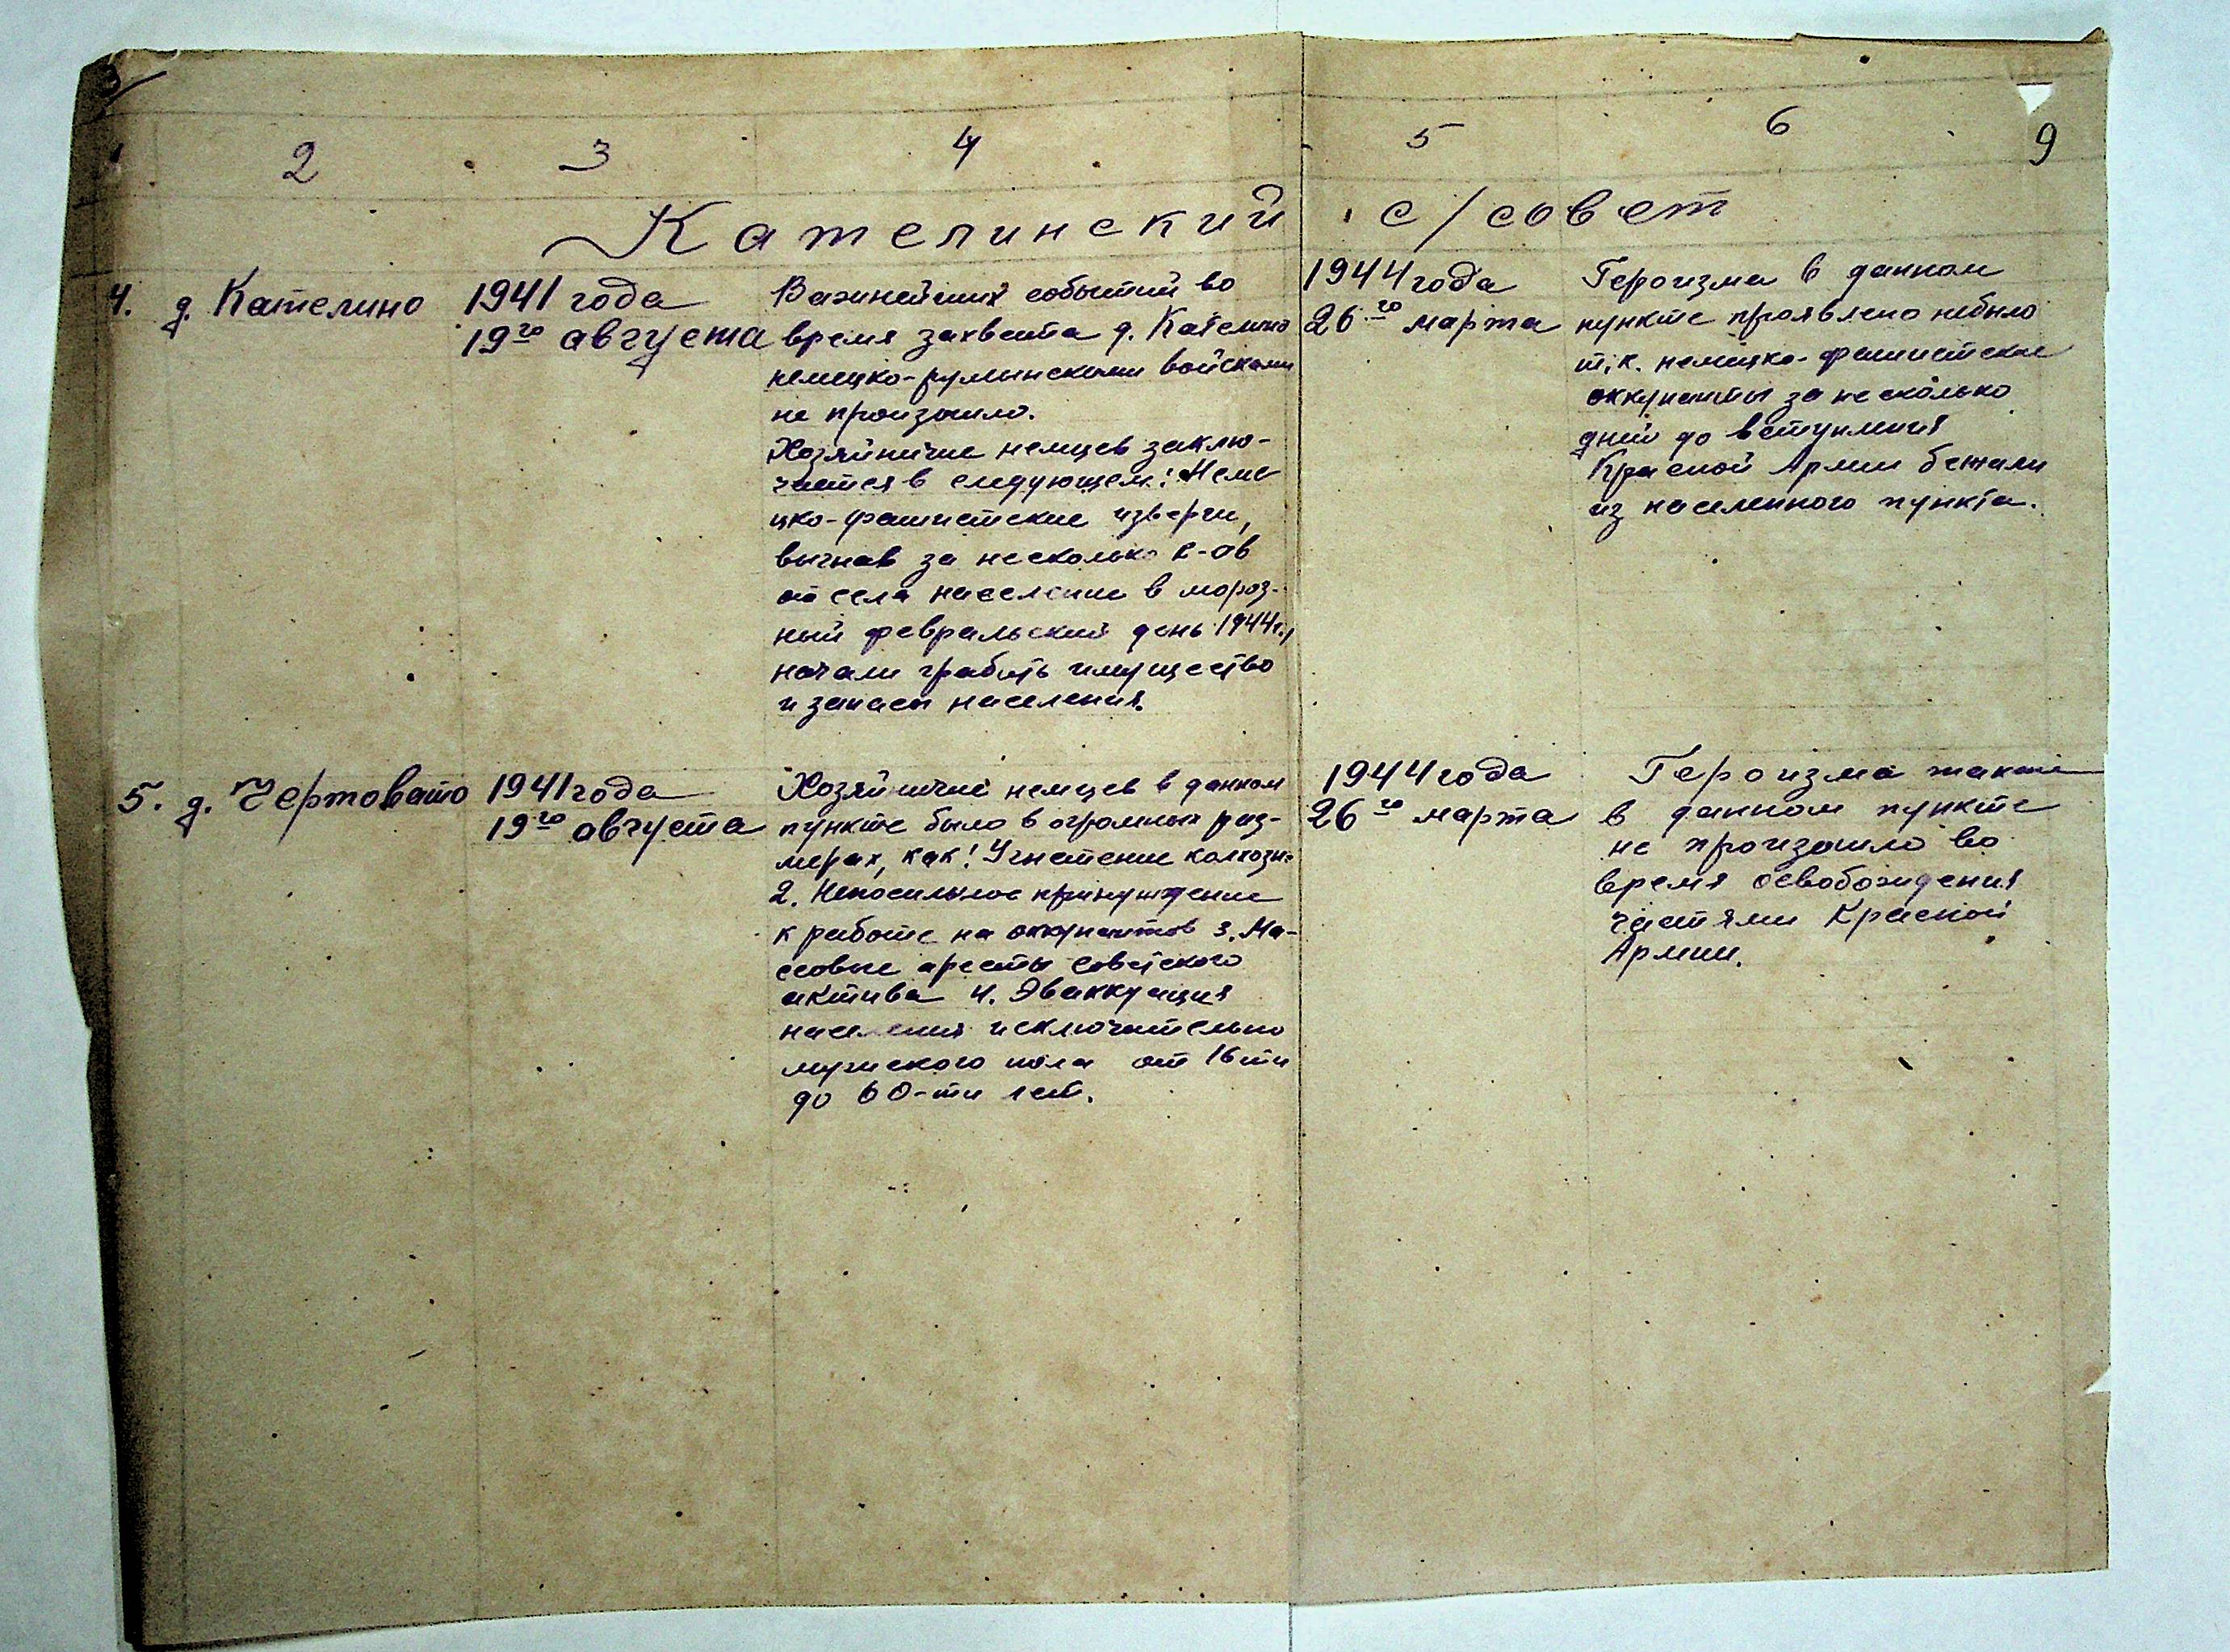 2 3 4 5 6 9
Кателинский с/совет
4. д. Кателино
1941 года
19го августа
Важнейших событий во
время захвата д. Кателино
немецко-румынскими войсками
не произошло.
Хозяйничие немцев заклю-
чается в следующем: Неме
цко-фашистские изверги,
выгнав за несколько к-ов
от села население в мороз-
ный февральский день 1944г.,
начали грабить имущество
и запасы населения.
1944 года
26го марта
Героизма в данном
пункте проявлено небыло
т.к. немецко-фашистские
оккупанты за несколько
дней до вступления
Красной Армии бежали
из населенного пункта.
5. д. Чертовато
1941 года
19го августа
Хозяйничие немцев в данном
пункте было в огромных раз-
мерах, как: Угнетение колхозн.
2. Непосильное принуждение
к работе на оккупантов 3. Ма-
совые аресты советского
актива 4. Эваккуация
населения исключительно
мужского пола от 16ти
до 60-ти лет.
1944 года
26го марта
Героизма также
в данном пункте
не произошло во
время освобождения
частями Красной
Армии.